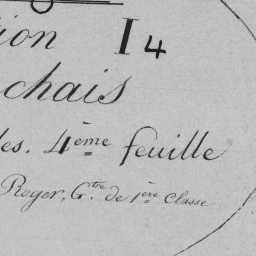 ion I 4
chais
les. 4ème feuille
Royer, G.tre de 1ère Classe